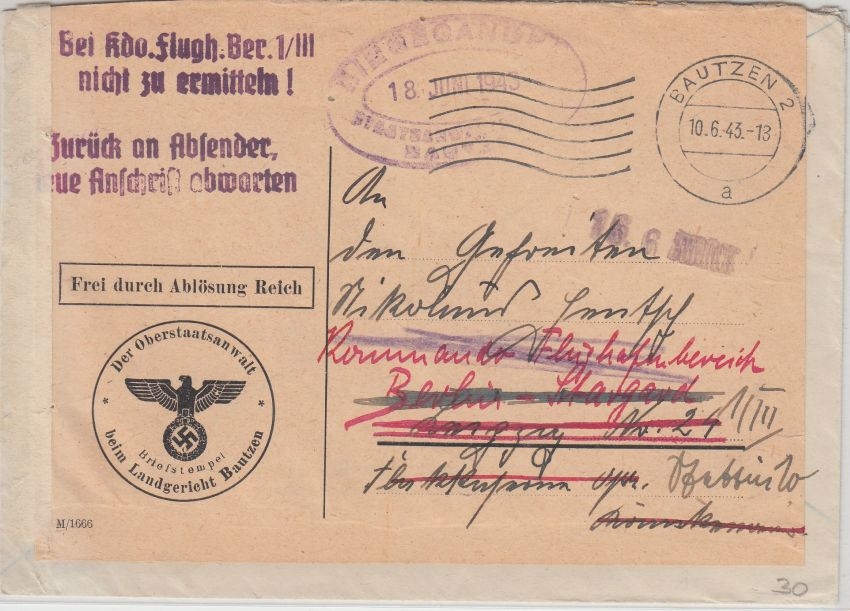 Bei Kdo. Flugh. Ber. 1/III
nicht zu ermitteln !
Zurück an Absender,
neue Anschrift abwarten
EINGEGANGEN
18. JUNI 1943
STAATSANW
BAUTZEN 2
10.6.43.-13
a
16. 6 ZURÜCK
An
den Gefreiten
Nikolaus Hentsch
Kommando Flughafenbereich
Berlin - Stargard 1/III
Leipzig No. 24
Flakkaserne
Frei durch Ablösung Reich
Der Oberstaatsanwalt
Briefstempel
beim Landgericht Bautzen
M/1666
30